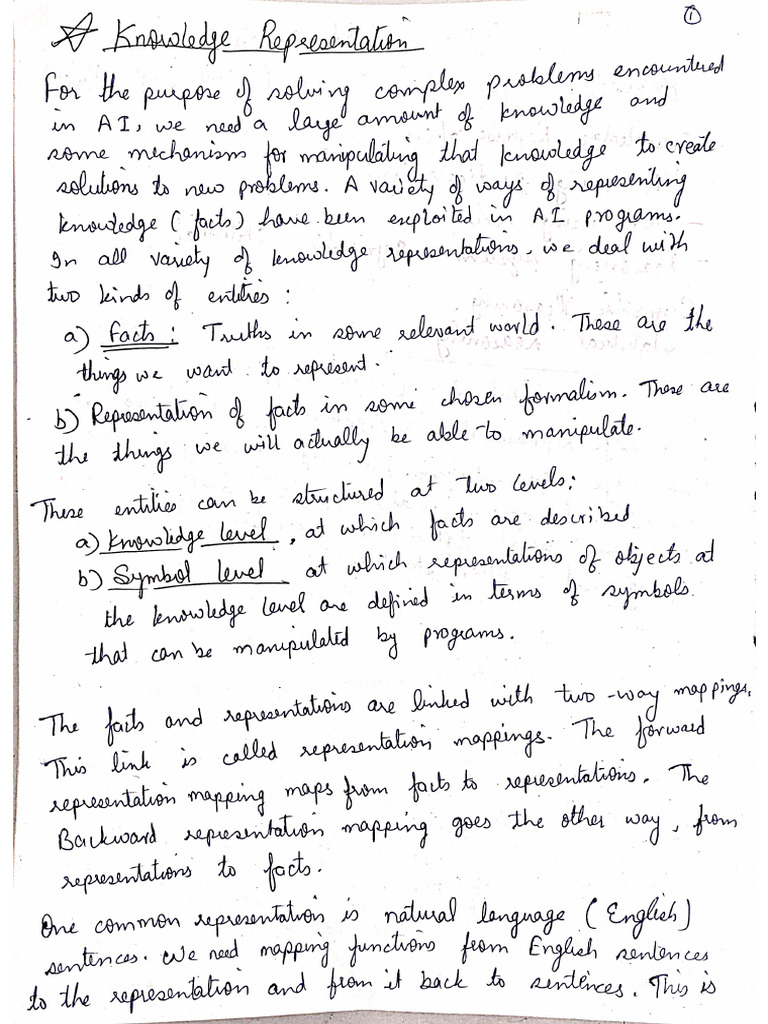 ①
☆ Knowledge Representation
For the purpose of solving complex problems encountered
in AI, we need a large amount of knowledge and
some mechanism for manipulating that knowledge to create
solutions to new problems. A variety of ways of representing
knowledge (facts) have been exploited in A.I programs.
In all variety of knowledge representations, we deal with
two kinds of entities :
a) Facts : Truths in some relevant world. These are the
things we want to represent.
b) Representation of facts in some chosen formalism. These are
the things we will actually be able to manipulate.
These entities can be structured at two levels:
a) Knowledge level, at which facts are described
b) Symbol level at which representations of objects at
the knowledge level are defined in terms of symbols
that can be manipulated by programs.
The facts and representations are linked with two-way mappings.
This link is called representation mappings. The forward
representation mapping maps from facts to representations. The
Backward representation mapping goes the other way, from
representations to facts.
One common representation is natural language (English)
sentences. We need mapping functions from English sentences
to the representation and from it back to sentences. This is